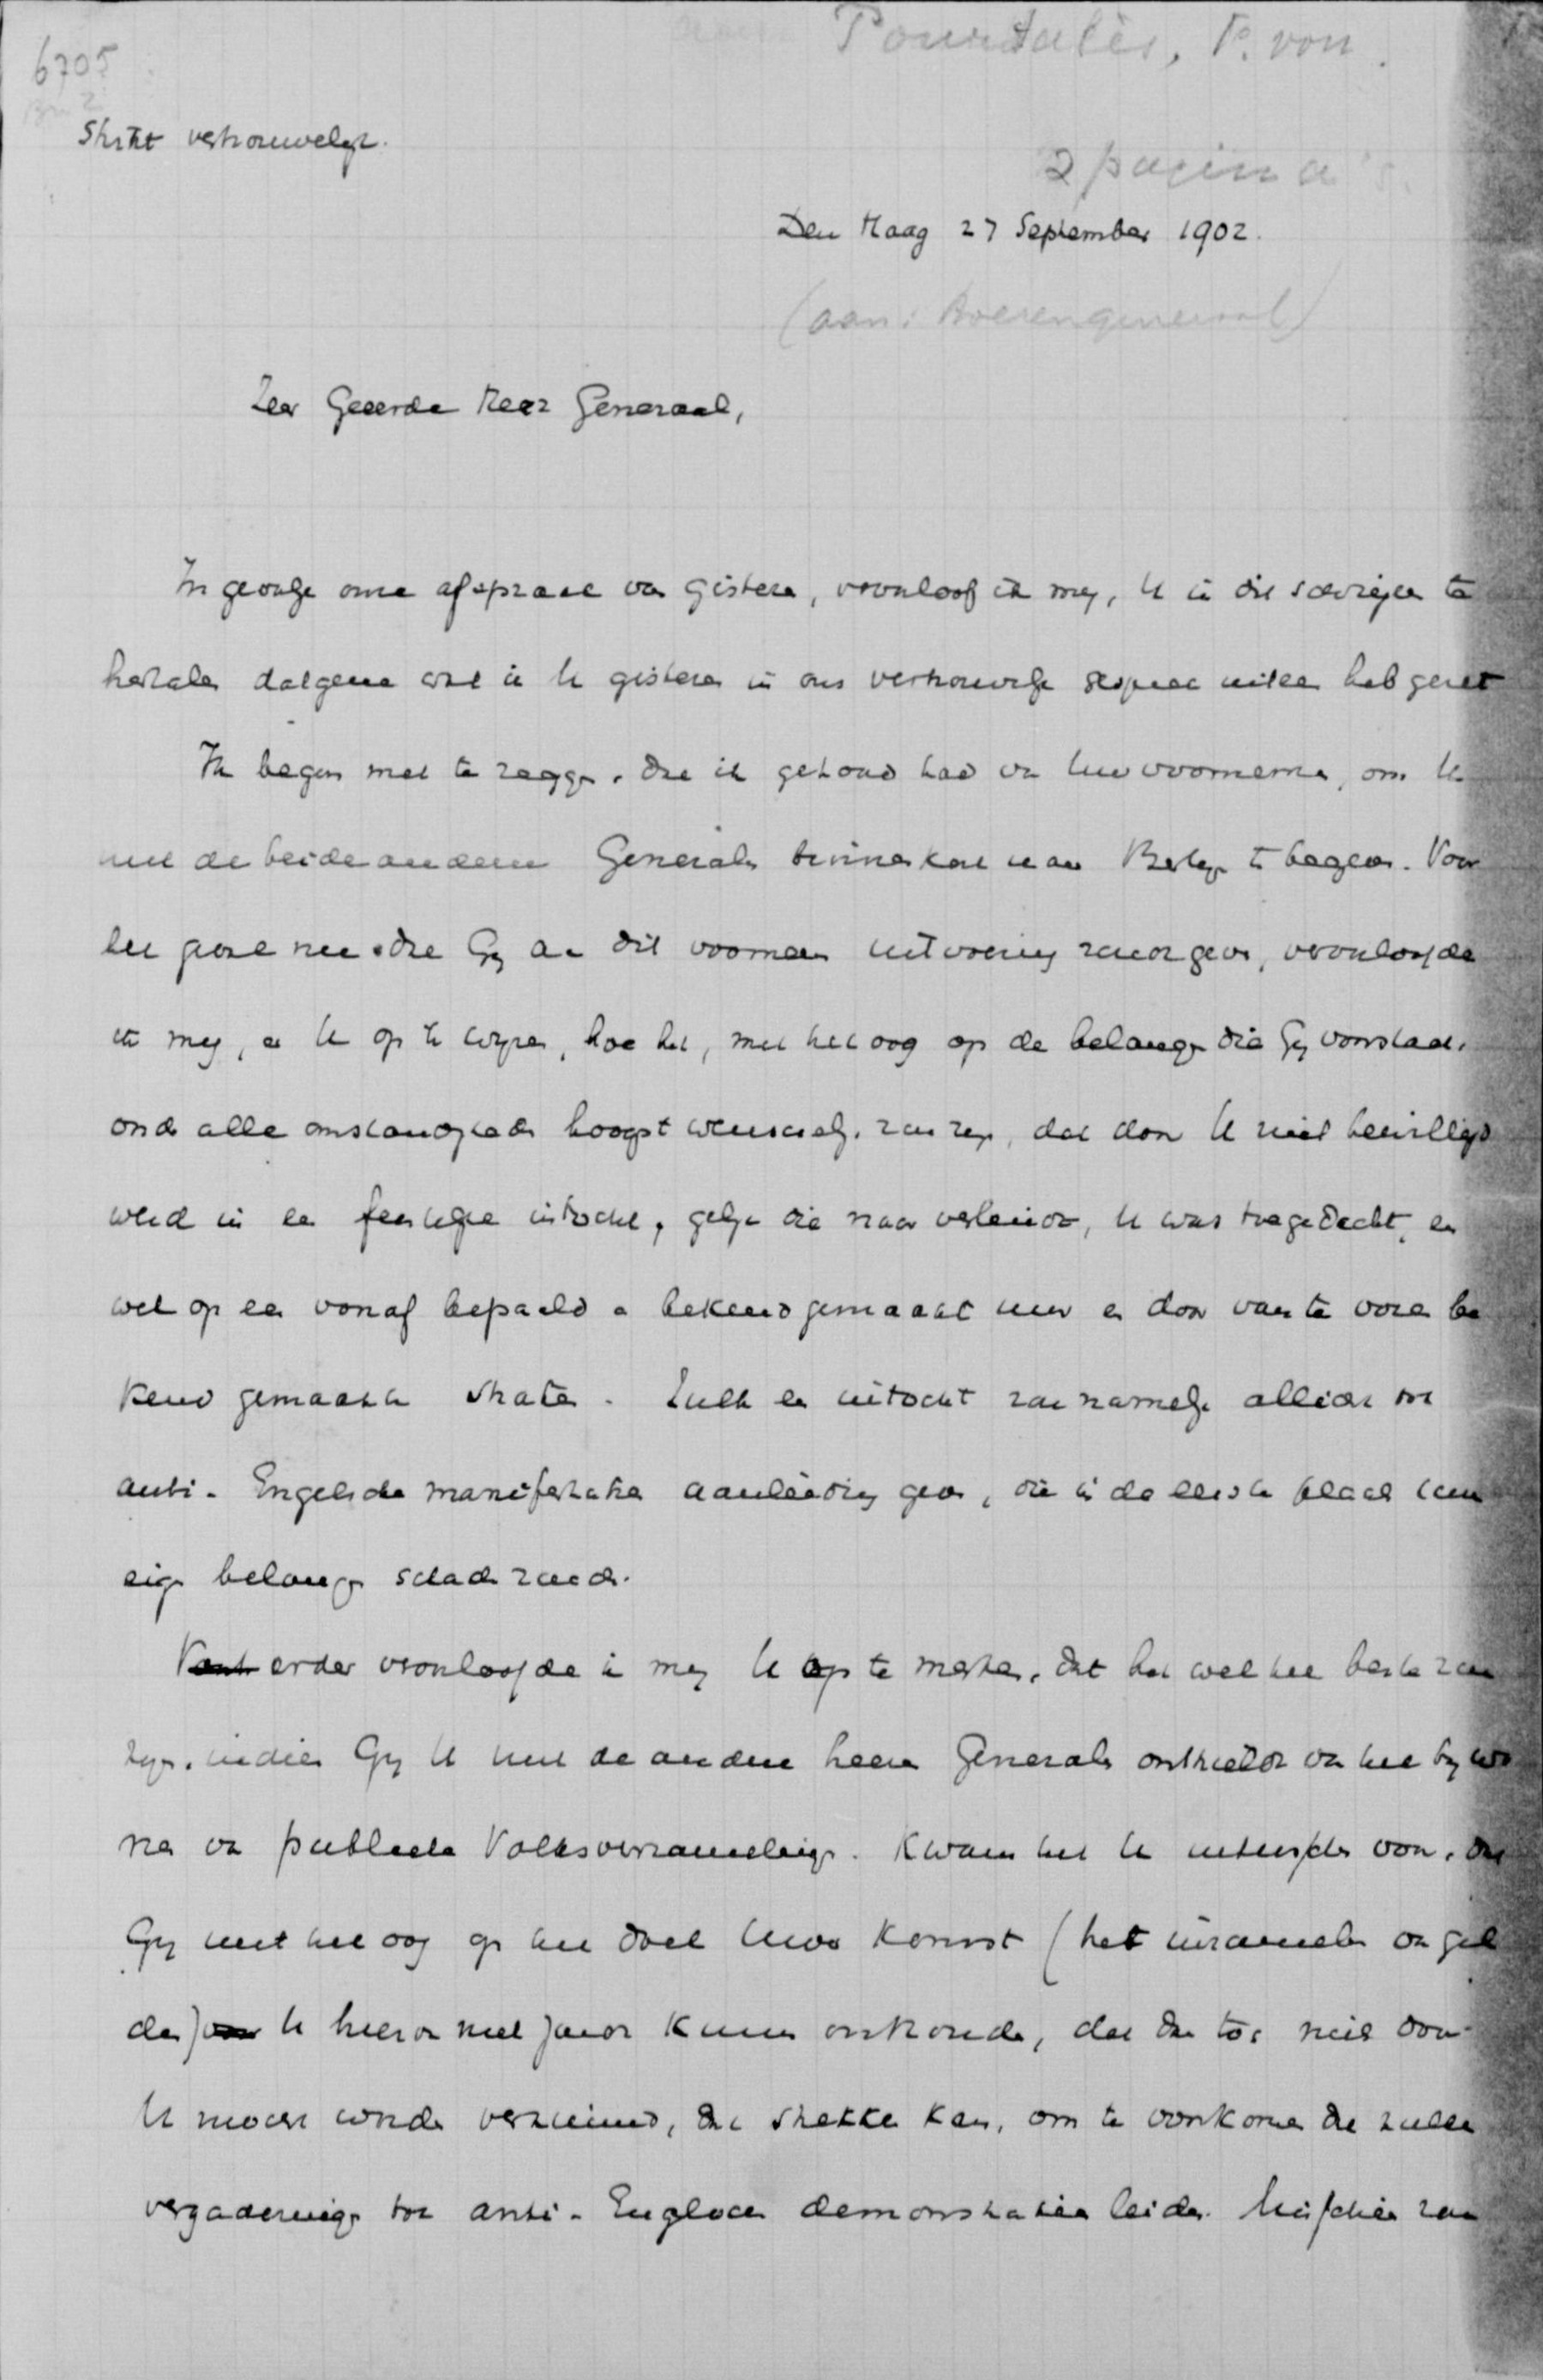 Pourtalès, F. von.
6705
Strikt vertrouwelijk.
2 pagina's.
Den Haag 27 September 1902.
(aan: Boerengeneraal)
Zeer Geeerde Heer Generaal,
In gevolge onze afspraak van gisteren, veroorloof ik mij, U in dit schrijven te
herhalen datgene wat ik U gisteren in ons vertrouwelijk gesprek uiteen heb gezet
Ik begon met te zeggen, dat ik gehoord had van Uw voornemen, om U
met de beide anderen Generaals binnenkort naar Berlijn te begeven. Voor
het geval nu dat Gij aan dit voornemen uitvoering zoudt geven, veroorloofde
ik mij, er U op te wijzen, hoe het, met het oog op de belangen die Gij voorstaat,
onder alle omstandigheden hoogst wenschelijk zou zijn, dat door U niet bewilligd
werd in een feestelijke intocht, gelijk die naar verluidt, U was toegedacht, en
wel op een vooraf bepaald en bekend gemaakt uur en door van te voren be
kend gemaakte straten. Zulk een intocht zou namelijk allicht tot
anti-Engelsche manifestaties aanleiding geven, die in de eerste plaats Uw
eigen belangen schaden zouden.
Verder veroorloofde ik mij U op te merken, dat het wel het beste zou
zijn, indien Gij U met de andere heeren Generaals onthieldt van het bijwo
nen van publieke Volksverzamelingen. Kwam het U intusschen voor, dat
Gij met het oog op het doel Uwer komst (het inzamelen van gel
den) U hiervan niet zoudt kunnen onthouden, dat dan toch niets door
U moest worden verzuimd, dat strekken kan, om te voorkomen dat zulke
vergaderingen tot anti-Engelsche demonstraties leiden. Misschien zou